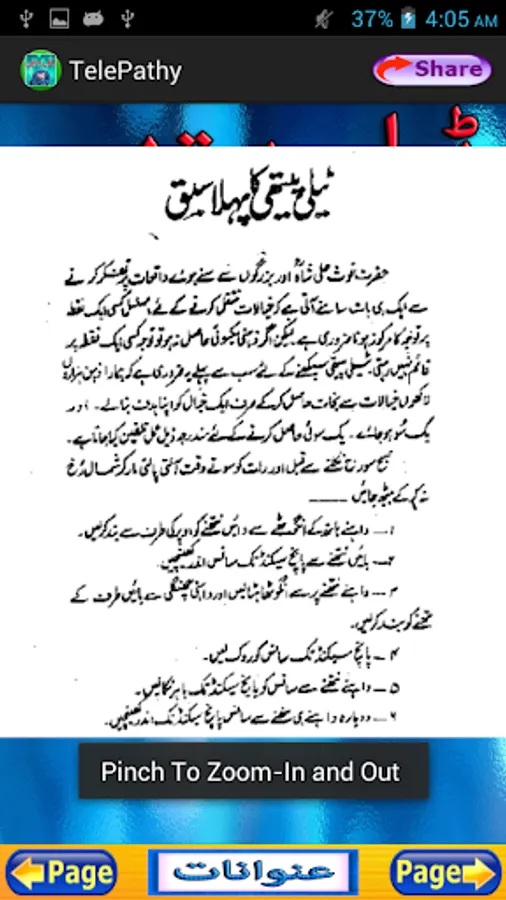 37% 4:05 AM
TelePathy
Share
ٹیلی پیتھی کا پہلا سبق
حضرت غوث علی شاہؒ اور بزرگوں سے سنے ہوئے واقعات پر تفکر کرنے
سے ایک ہی بات سامنے آتی ہے کہ خیالات منتقل کرنے کے لئے مسلسل کسی ایک نقطہ
پر توجہ کا مرکوز ہونا ضروری ہے لیکن اگر ذہنی یکسوئی حاصل نہ ہو تو توجہ کسی ایک نقطہ پر
قائم نہیں رہتی۔ ٹیلی پیتھی سیکھنے کے لئے سب سے پہلے یہ ضروری ہے کہ ہمارا ذہن ہزاروں
لاکھوں خیالات سے نجات حاصل کر کے صرف ایک خیال کو اپنا ہدف بنا لے۔ اور
یک سُو ہو جائے۔ یک سوئی حاصل کرنے کے لئے مندرجہ ذیل عمل تلقین کیا جاتا ہے۔
صبح سورج نکلنے سے قبل اور رات کو سوتے وقت آلتی پالتی مار کر شمال رُخ
منہ کر کے بیٹھ جائیں ــــــــ
۱ـ داہنے ہاتھ کے انگوٹھے سے دائیں نتھنے کو اوپر کی طرف سے بند کر لیں۔
۲ـ بائیں نتھنے سے پانچ سیکنڈ تک سانس اندر کھینچیں۔
۳ـ داہنے نتھنے پر سے انگوٹھا ہٹا لیں اور داہنی چھنگلی سے بائیں طرف کے
نتھنے کو بند کر لیں۔
۴ـ پانچ سیکنڈ تک سانس کو روک لیں۔
۵ـ داہنے نتھنے سے سانس کو پانچ سیکنڈ تک باہر نکالیں۔
۶ـ دوبارہ داہنے ہی نتھنے سے سانس پانچ سیکنڈ تک اندر کھینچیں۔
Pinch To Zoom-In and Out
Page
عنوانات
Page